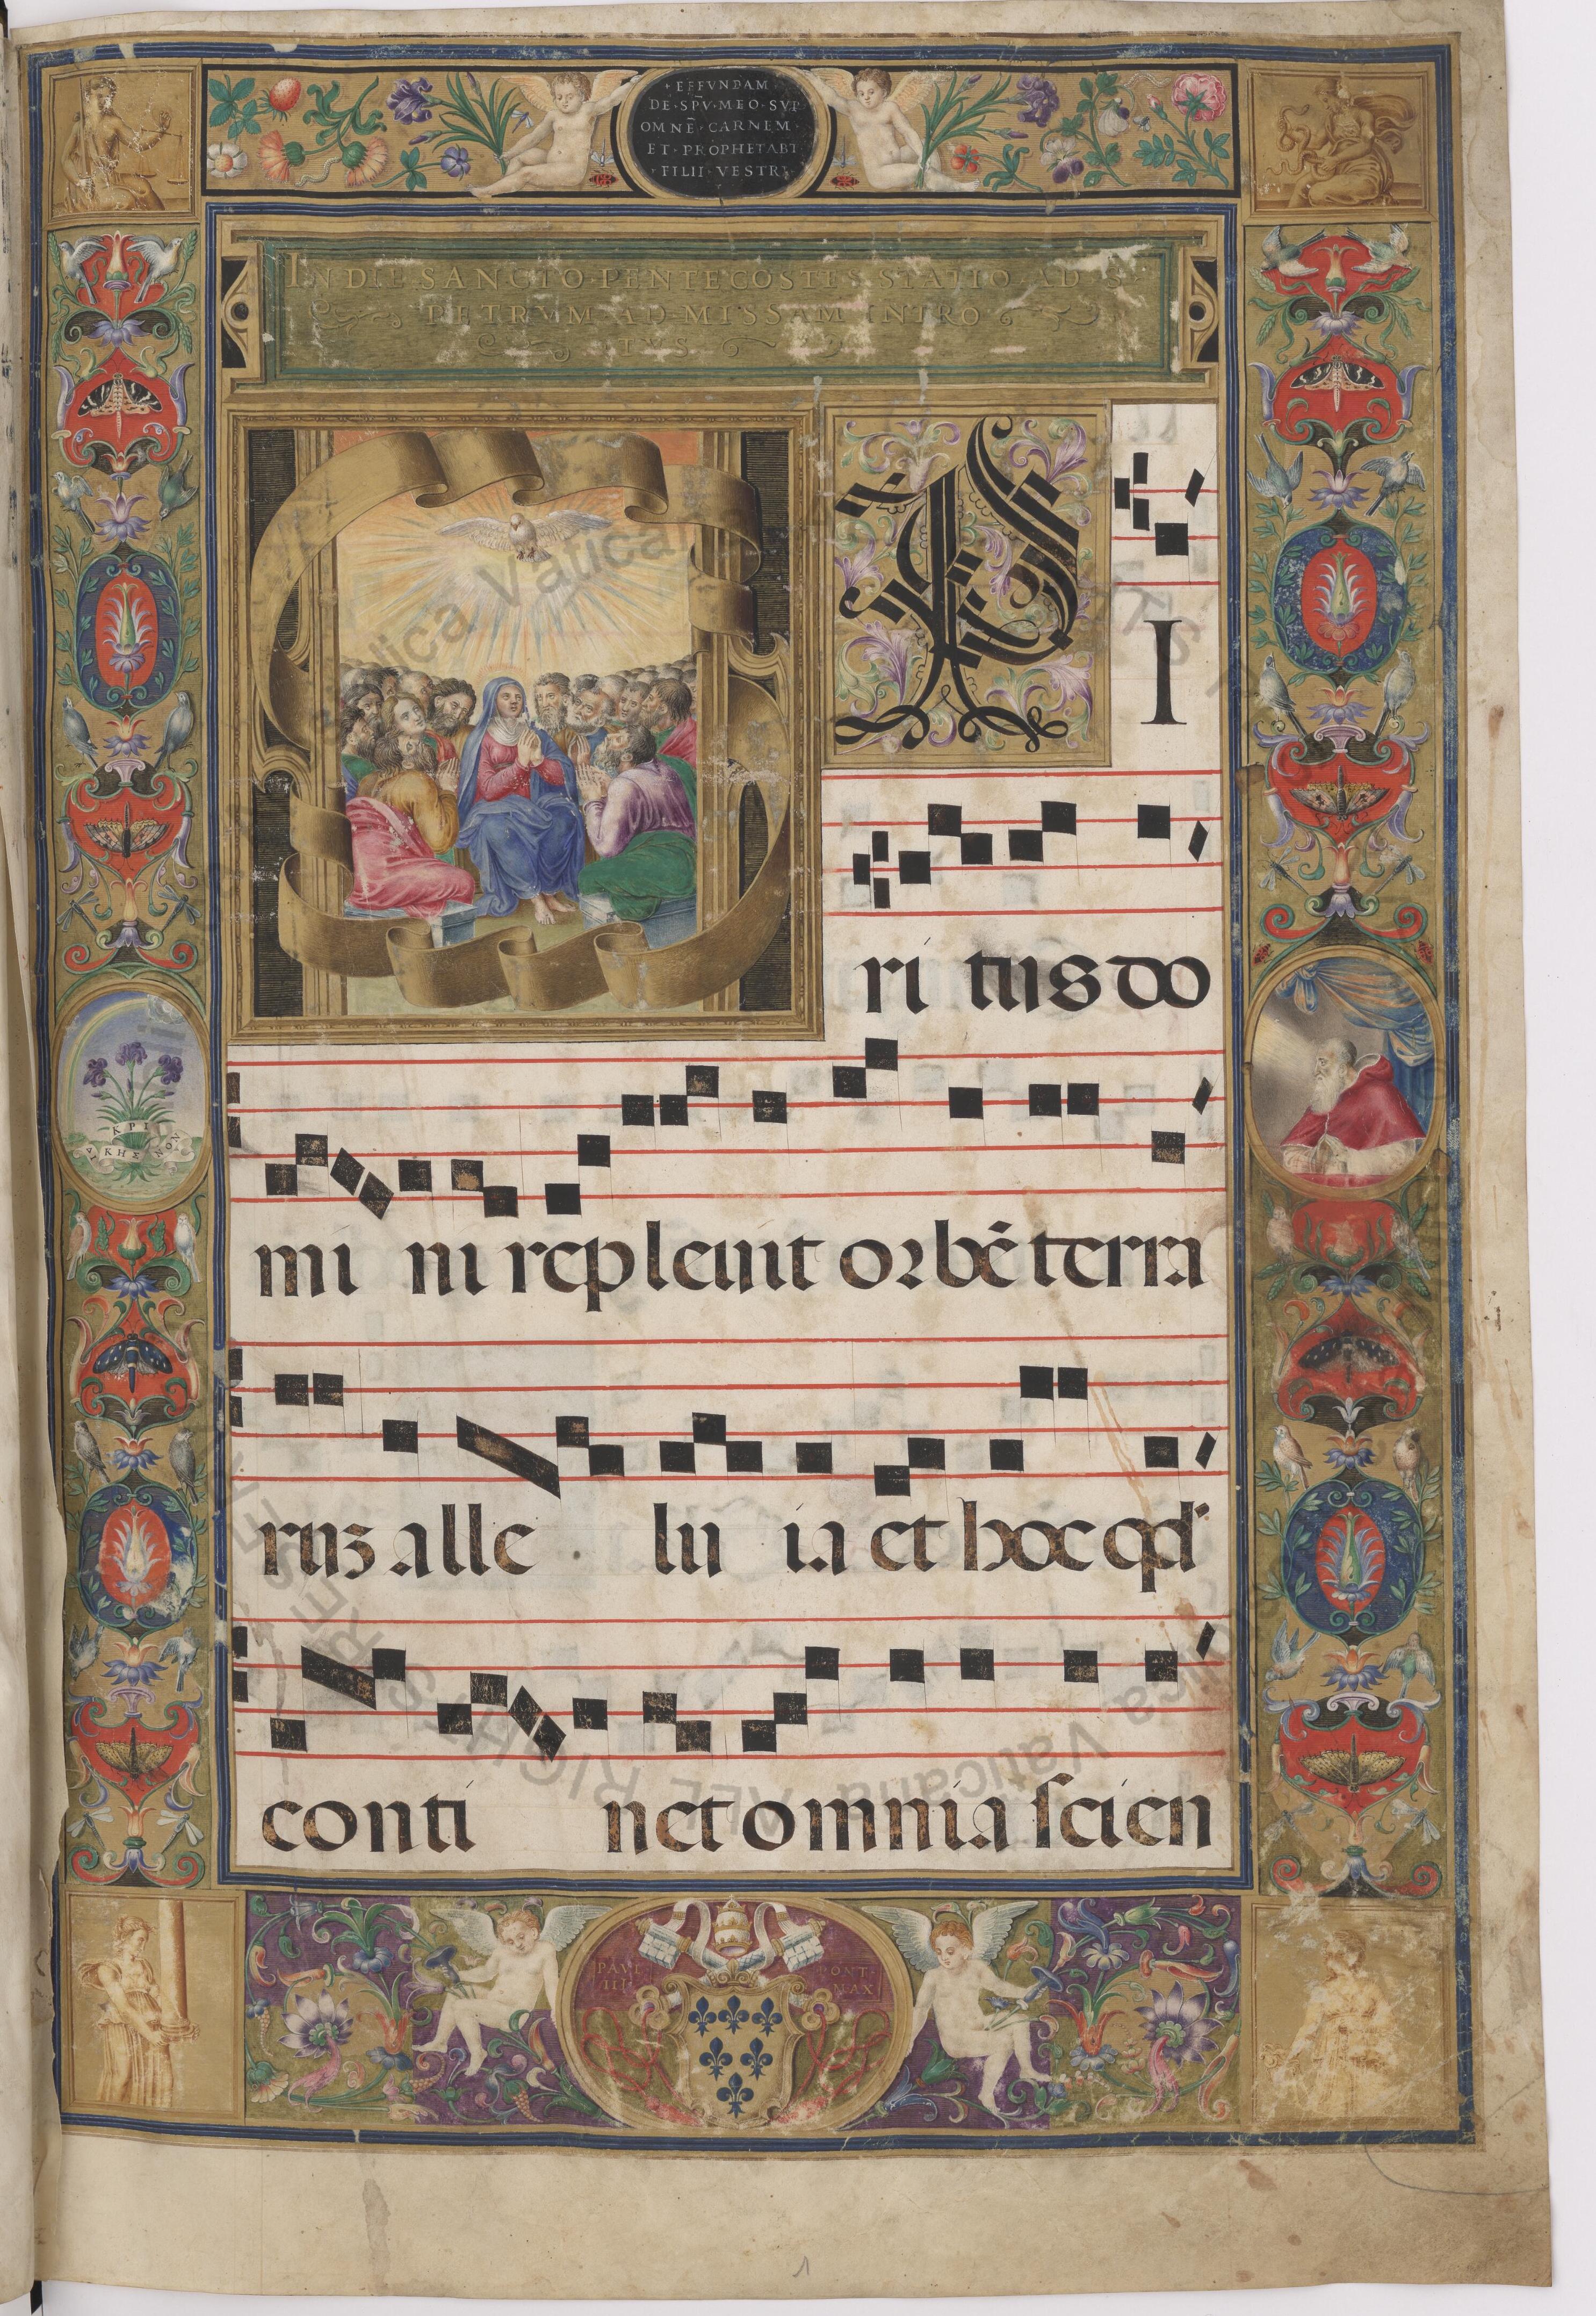 ·EFFVNDAM
DE·SPV̄·MEO·SVP
OMNĒ·CARNEM·
ET·PROPHETABT
·FILII·VESTRI·
IN DIE SANCTO·PENTECOSTES STATIO AD S·
PETRVM AD MISSAM INTRO
ITVS
SP I
ri tus do
mi ni repleuit orbē terra
ruꝫ alle lu ia et hoc qd'
conti net omnia scien
ΚΡΙ
ΔΙΚΗΣ ΝΟΝ
PAVL III PONT MAX
1